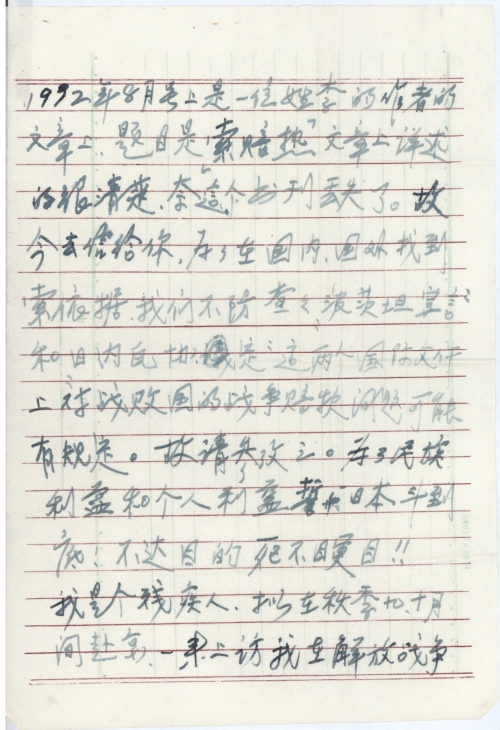 1992年8月号上是一位姓李的作者的
文章上.题目是"索赔热"文章上详述
的很清楚.奈这个书刊丢失了。故
今去信给你,为了在国内.国外找到
索依据.我们不防查之"波茨坦宣言"
和日内瓦协定"这两个国际文件
上对战败国的战争赔款问题可能
有规定。故请参攷之。为了民族
利益和个人利益誓与日本斗到
底!不达目的死不瞑目!!
我是个残疾人.拟在秋季九十月
间赴京.一来上访我在解放战争